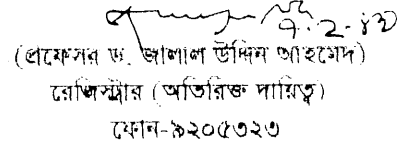 ৭.2.১৩
(প্রফেসর ড. জালাল উদ্দিন আহমেদ)
রেজিস্ট্রার (অতিরিক্ত দায়িত্ব)
ফোন-৯২০৫৩২৩